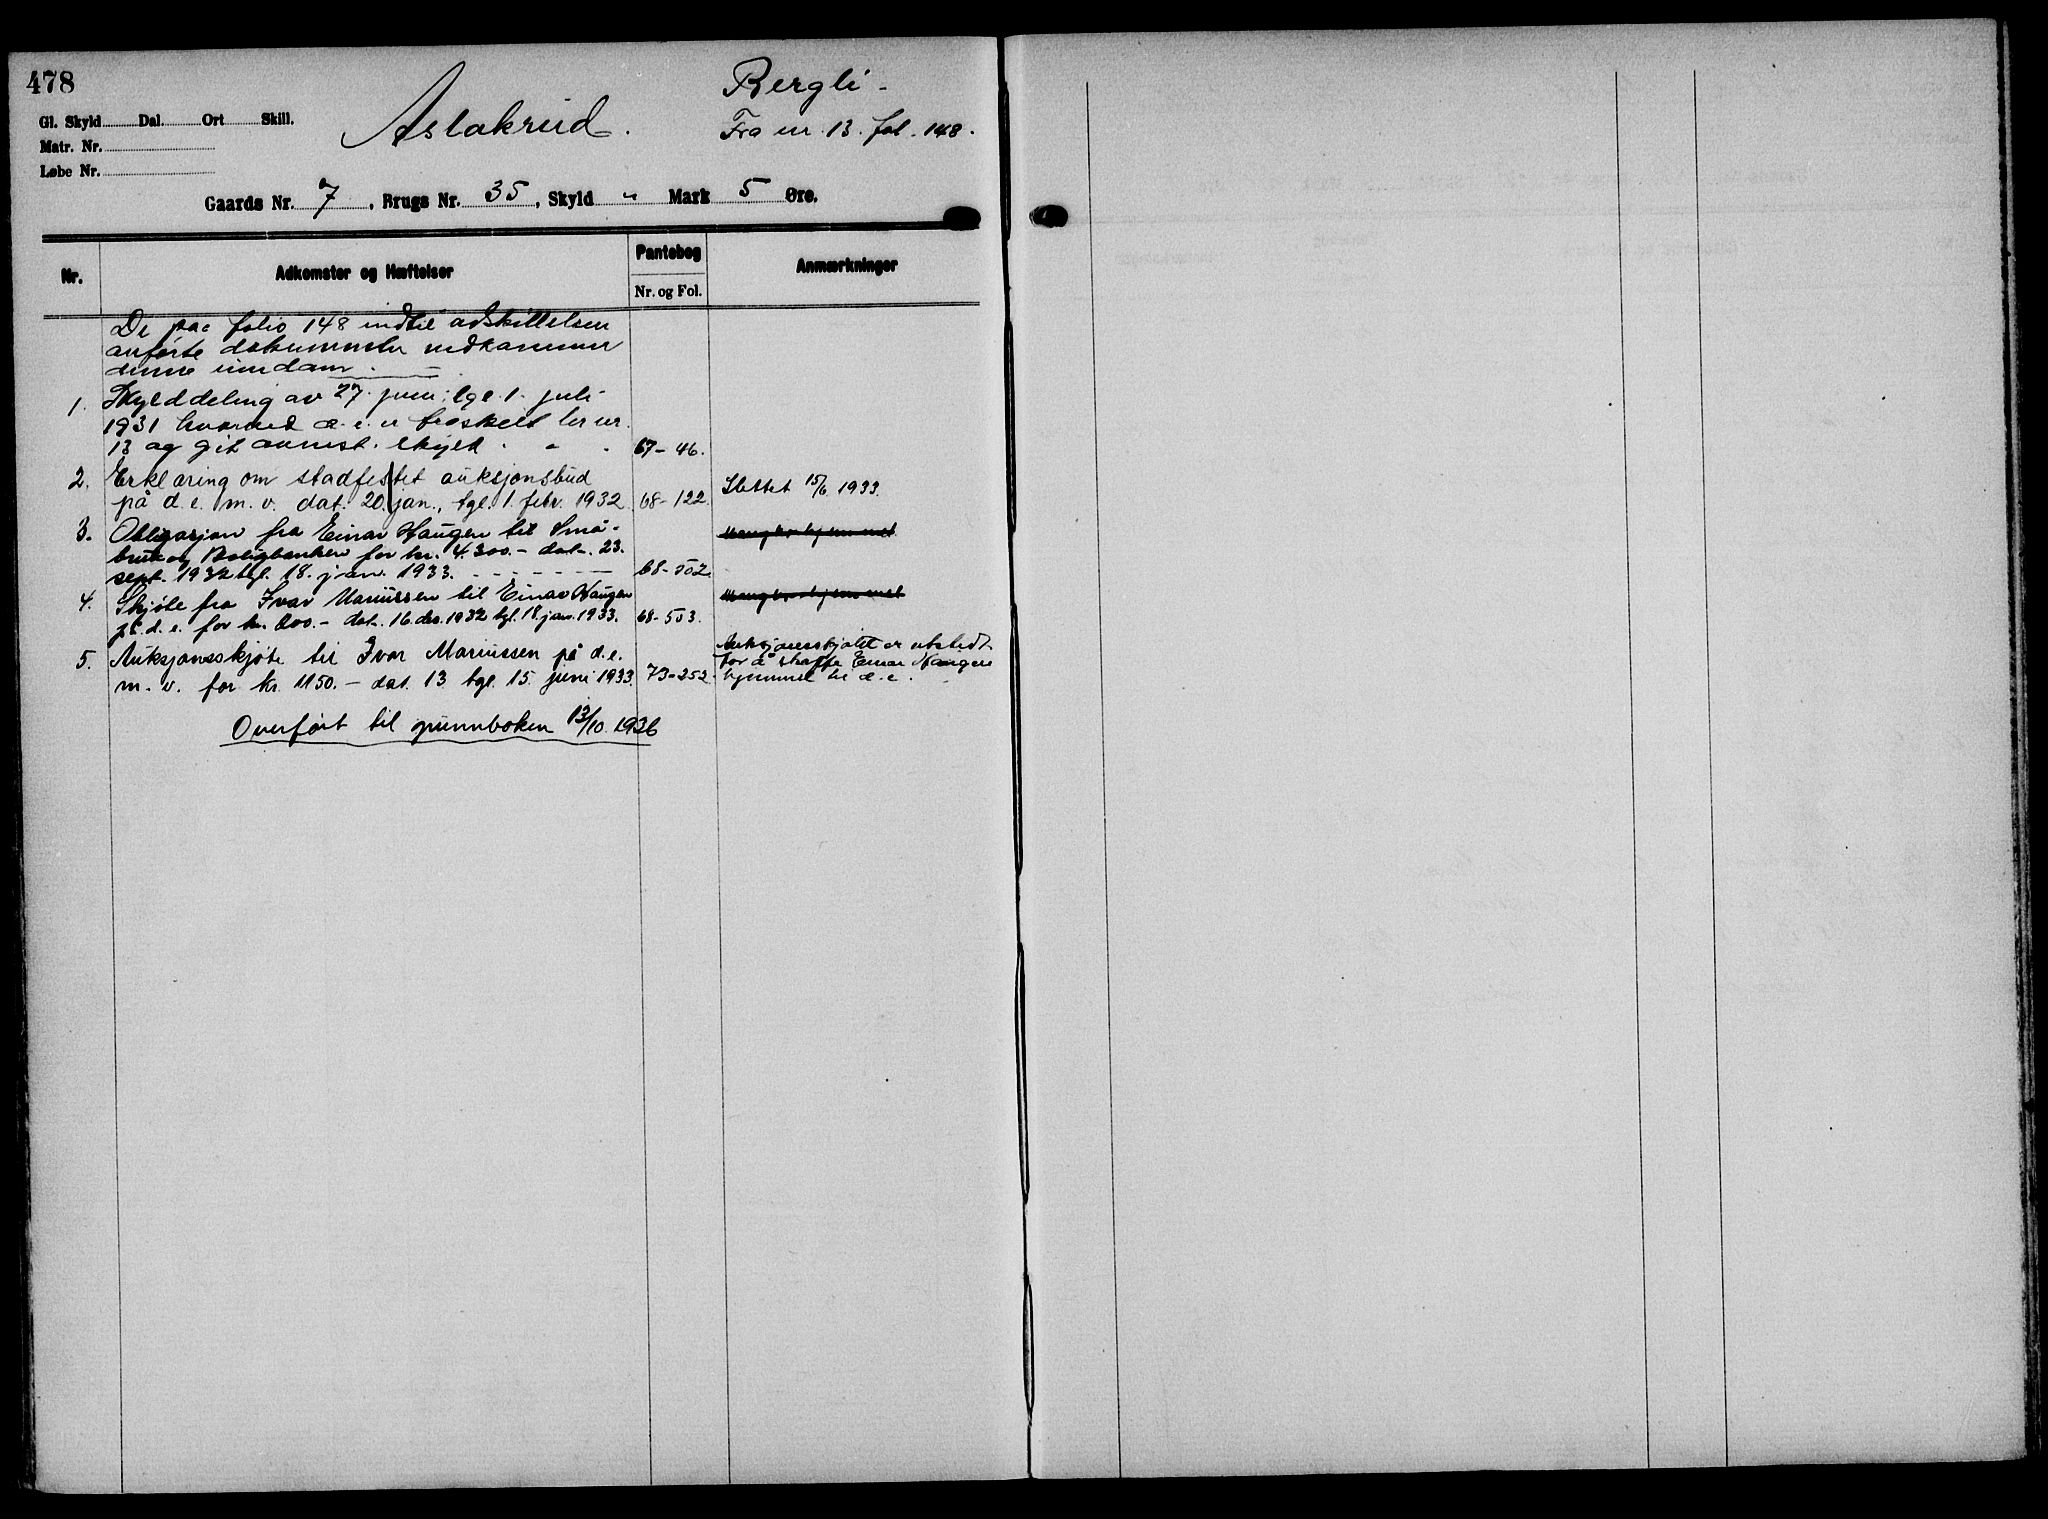 478
Bergli -
Aslakrud.
Fra nr. 13. fol. 148.
Gl. Skyld Dal. Ort Skill.
Matr. Nr.
Løbe Nr.
Gaards Nr. 7, Brugs Nr. 35, Skyld " Mark 5 Øre.
Nr. Adkomster og Hæftelser Pantebog Anmærkninger
Nr. og Fol.
De paa folio 148 indtil adskillelsen
anførte dokumenter vedkommer
denne eiendom.
1. Skylddeling av 27. juni, tgl. 1. juli
1931 hvorved d. e. er fraskelt br nr.
13 og git anmst. skyld. 67-46.
2. Erklæring om stadfestet auksjonsbud
på d. e. m. v. dat. 20. jan., tgl. 1. febr. 1932. 68-122. Slettet 15/6 1933.
3. Obligasjon fra Einar Haugen til Små-
bruk og Boligbanken for kr. 4.300.- dat. 23.
sept. 1932 tgl. 18. jan. 1933. 68-552.
4. Skjøte fra Ivar Mariussen til Einar Haugen
på d. e. for kr. 800.- dat. 16. des. 1932 tgl. 18. jan. 1933. 68-553.
5. Auksjonsskjøte til Ivar Mariussen på d. e.
m. v. for kr. 1150.- dat. 13. tgl. 15. juni 1933. 73-252.
Auksjonsskjøtet er utstedt
for å skaffe Einar Haugen
hjemmel til d. e.
Overført til grunnboken 13/10. 1936